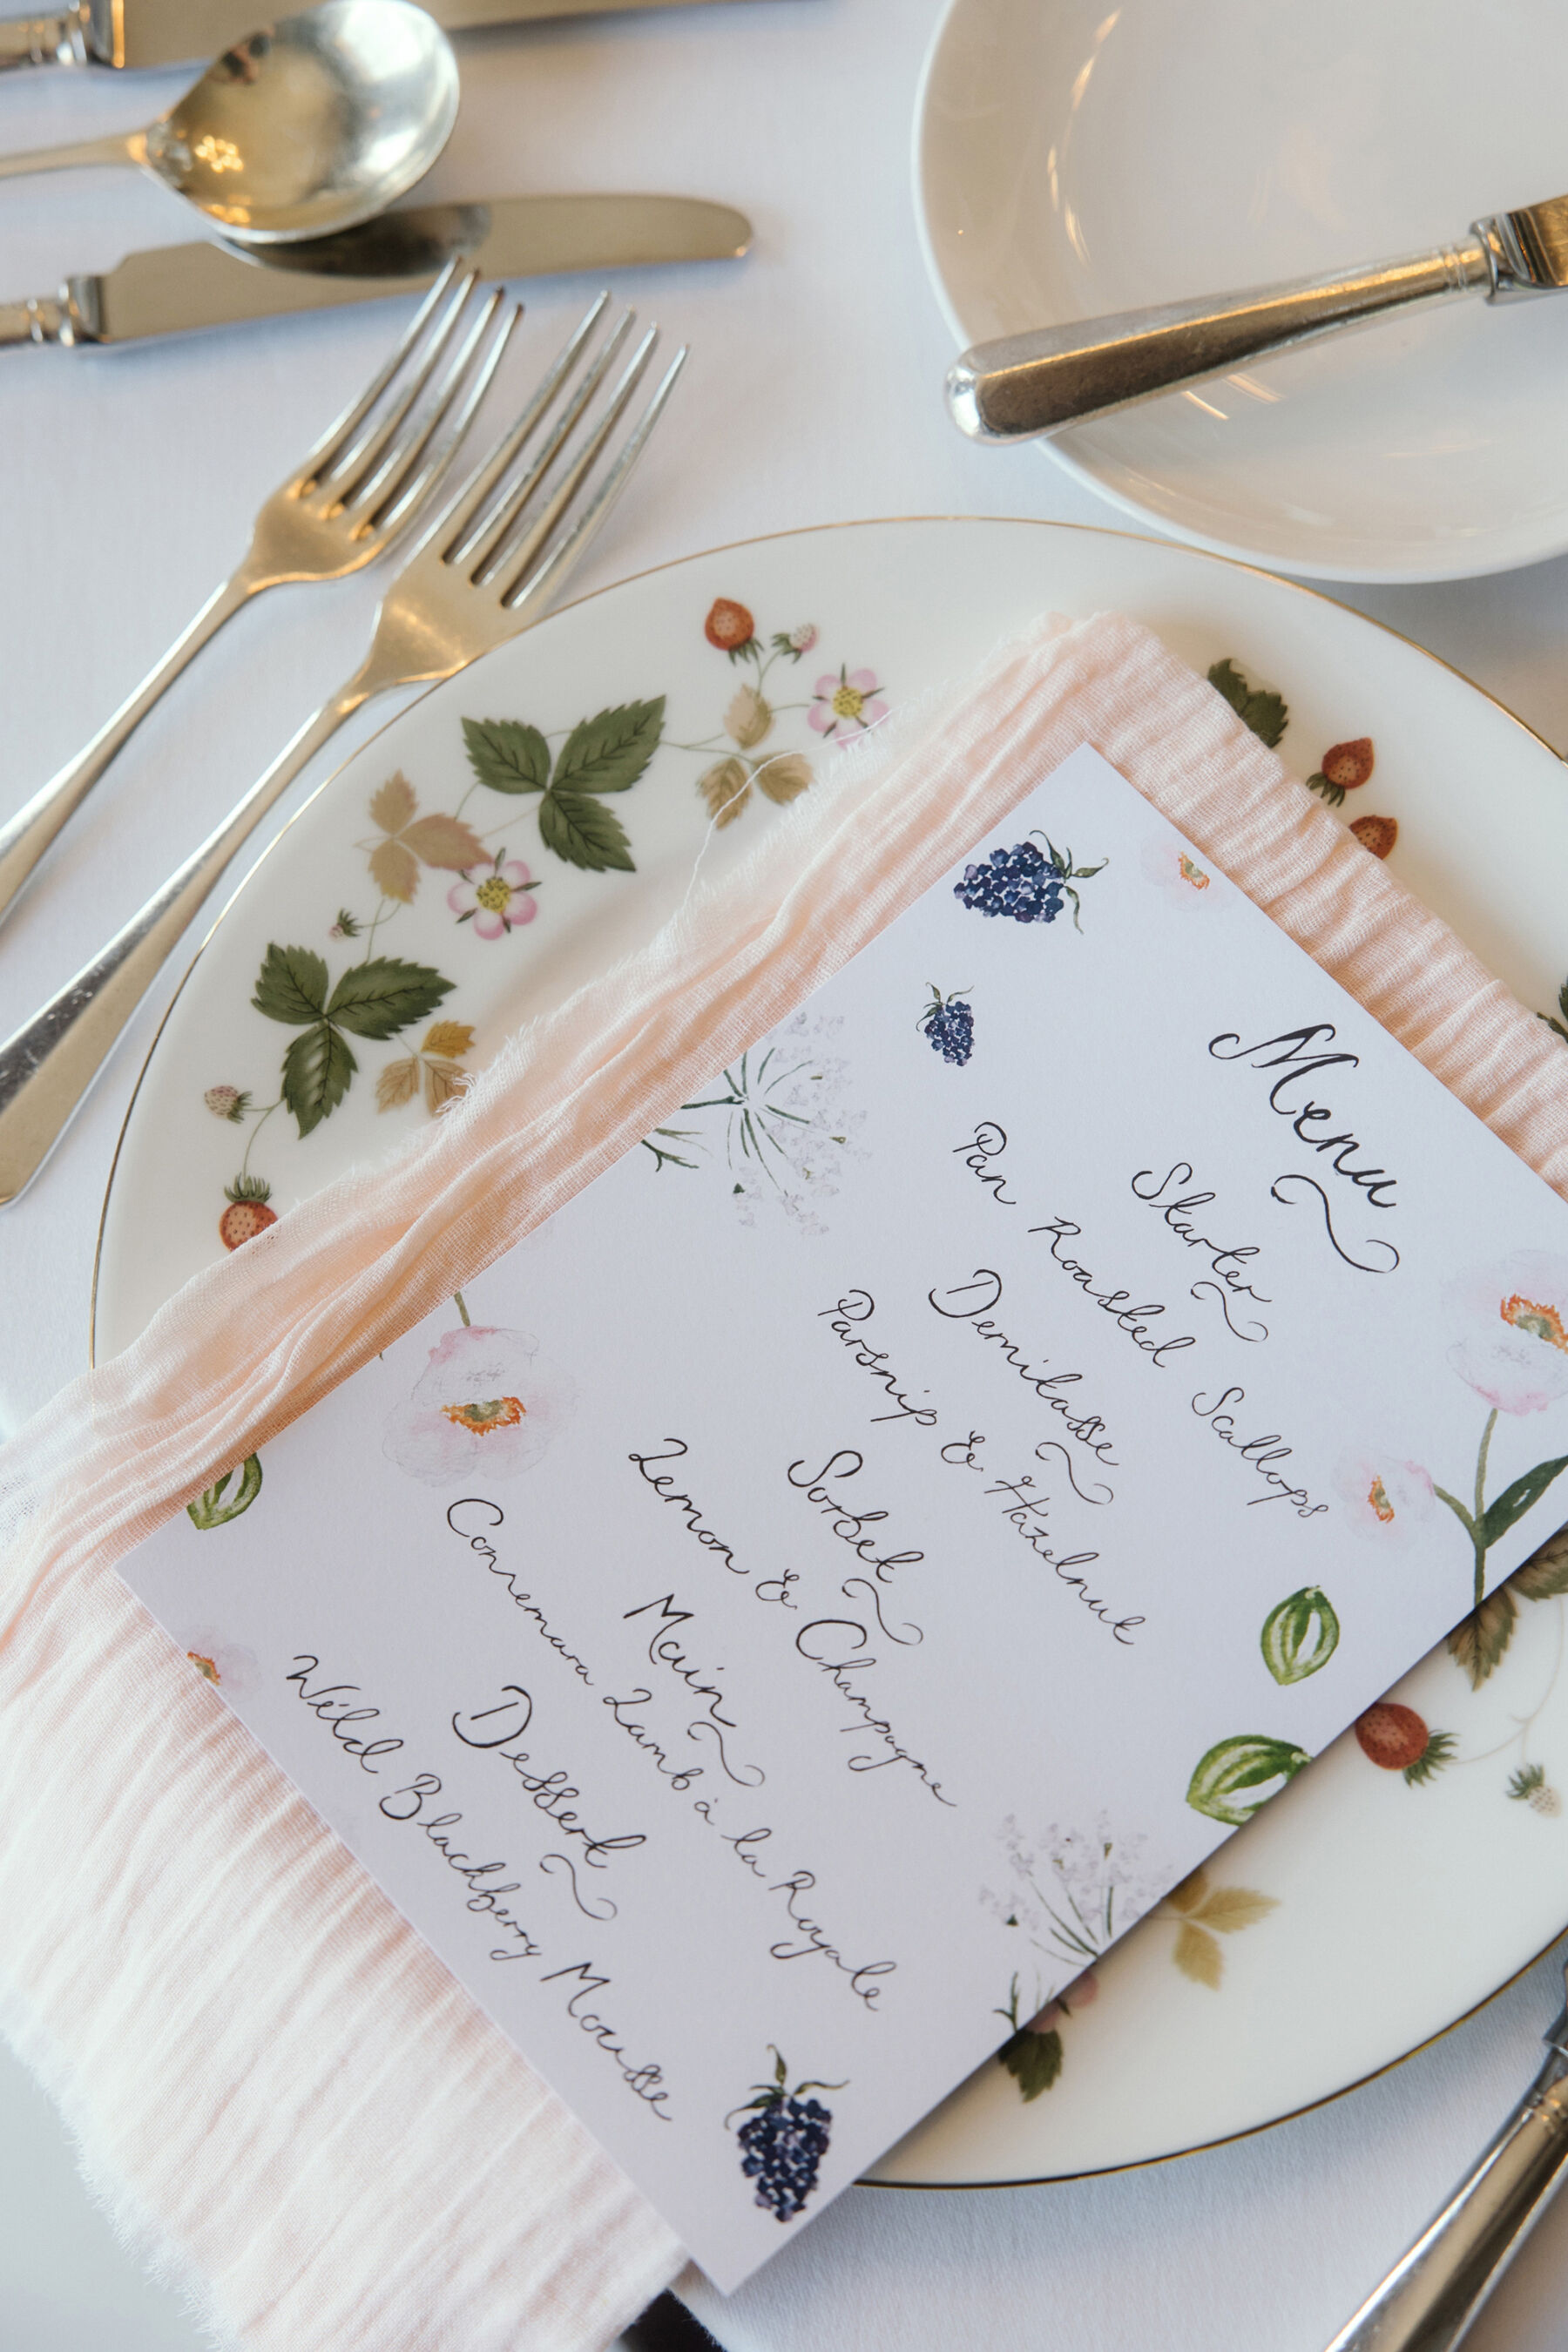 Menu
Starter
Pan Roasted Scallops
Demitasse
Parsnip & Hazelnut
Sorbet
Lemon & Champagne
Main
Connemara Lamb à la Royale
Dessert
Wild Blackberry Mousse